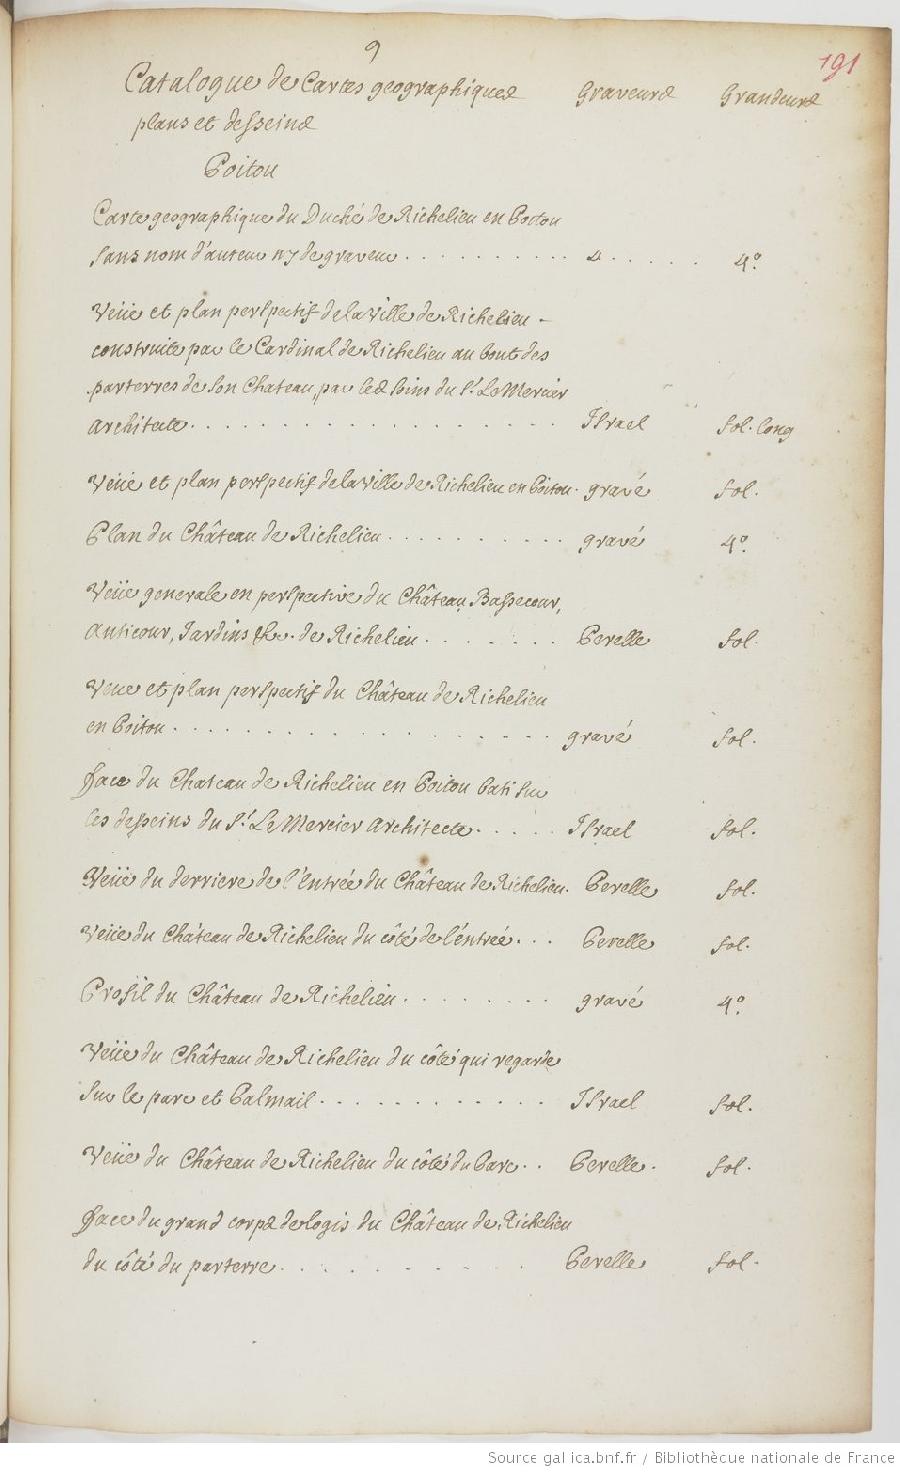 9
191
Catalogue de Cartes geographiques Graveurs Grandeurs
plans et desseins
Poitou
Carte geographique du Duché de Richelieu en Poitou
sans nom d'auteur ny de graveur . . . . . . . . . . 4 . . . . . 4º.
Veüe et plan perspectif de la Ville de Richelieu -
construite par le Cardinal de Richelieu au bout des
parterres de son Chateau, par les soins du Sr. Le Mercier
architecte . . . . . . . . . . . . . . . . . . Israel fol. long
Veüe et plan perspectif de la Ville de Richelieu en Poitou . gravé fol.
Plan du Château de Richelieu . . . . . . . . . . gravé 4º.
Veüe generale en perspective du Château, Bassecour,
Anticour, Jardins &c. de Richelieu . . . . . . . Perelle fol.
Veue et plan perspectif du Château de Richelieu
en Poitou . . . . . . . . . . . . . . . . . gravé fol.
face du Chateau de Richelieu en Poitou bati sur
les desseins du Sr. Le Mercier Architecte . . . . . Israel fol.
Veüe du derriere de l'entrée du Château de Richelieu . Perelle fol.
Veüe du Château de Richelieu du côté de l'éntrée . . . Perelle fol.
Profil du Château de Richelieu . . . . . . . . gravé 4º.
Veüe du Château de Richelieu du côté qui regarde
sur le parc et Palmail . . . . . . . . . . . . Israel fol.
Veüe du Château de Richelieu du côté du Parc . . Perelle . fol.
face du grand corps de logis du Château de Richelieu
du côté du parterre . . . . . . . . . Perelle fol.
Source gallica.bnf.fr / Bibliothèque nationale de France